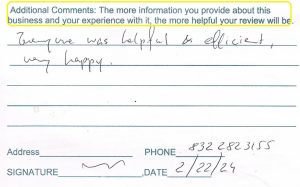 Additional Comments: The more information you provide about this
business and your experience with it, the more helpful your review will be.
Everyone was helpful & efficient,
very happy.
Address PHONE 832 282 3155
SIGNATURE DATE 2/22/24